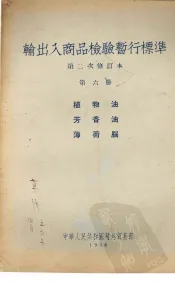 輸出入商品檢驗暫行標準
第二次修訂本
第六册
植物油
芳香油
薄荷腦
中華人民共和國對外貿易部
1956